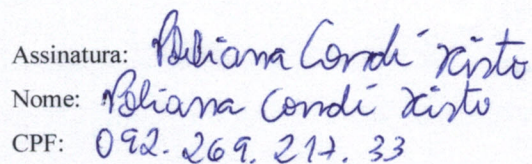 Assinatura: Poliana Condé Xisto
Nome: Poliana Condé Xisto
CPF: 092.269.217.33